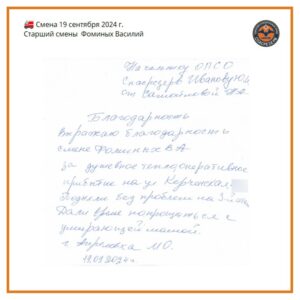 Смена 19 сентября 2024 г.
Старший смены Фоминых Василий
Начальнику ОПСО
Спасрезерв Иванову Ю.
от Самойловой
Благодарность
выражаю благодарность
смене Фоминых В А
за душевное тепло, оперативное
прибытие на ул Керченская
Подняли без проблем на 5 этаж
Дали время попрощаться с
умирающей мамой.
г. Апрелевка МО.
19.09.2024г.